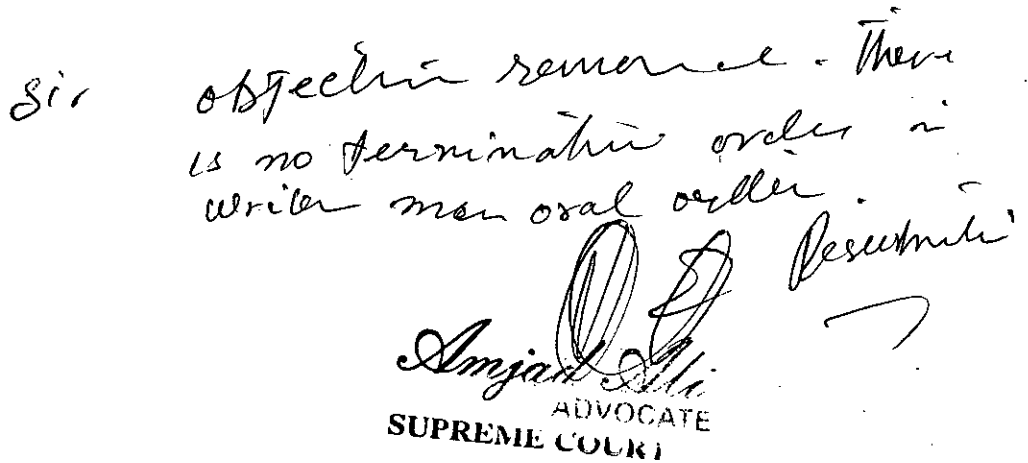 Sir objection removed. There
is no termination order in
writen man oral order.
Resubmitted
Amjad Ali
ADVOCATE
SUPREME COURT